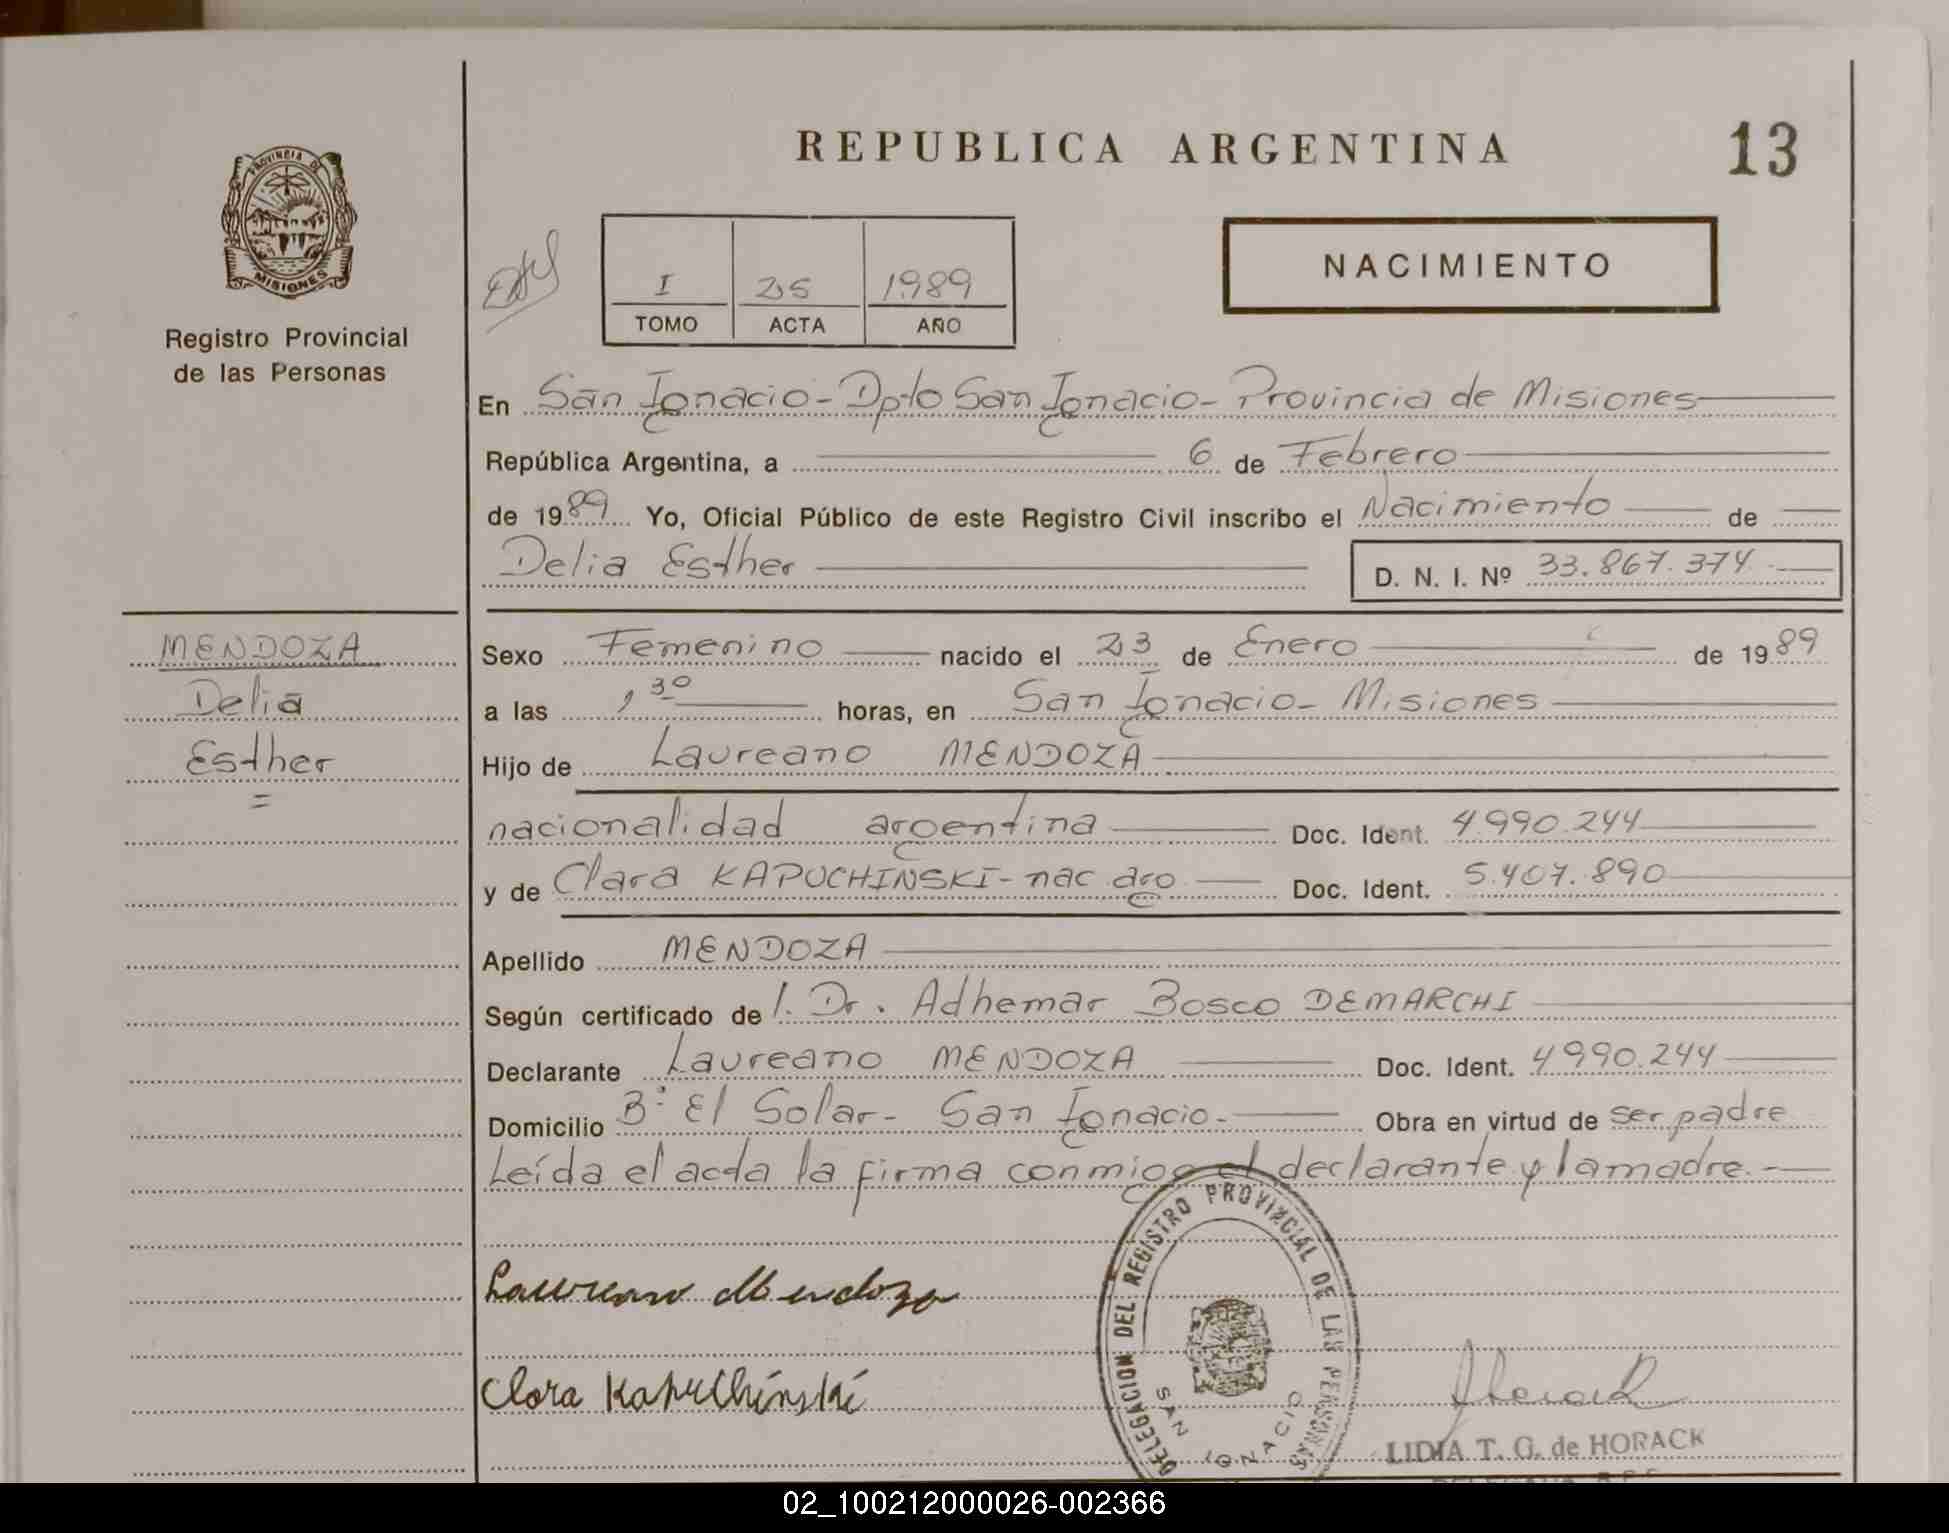 REPUBLICA ARGENTINA
13
PROVINCIA DE
MISIONES
Registro Provincial
de las Personas
I 25 1989
TOMO ACTA AÑO
NACIMIENTO
En San Ignacio - Dpto San Ignacio - Provincia de Misiones
República Argentina, a 6 de Febrero
de 1989 Yo, Oficial Público de este Registro Civil inscribo el Nacimiento de
Delia Esther
D. N. I. Nº 33.867.374
MENDOZA
Delia
Esther
=
Sexo Femenino nacido el 23 de Enero de 1989
a las 1,30 horas, en San Ignacio - Misiones
Hijo de Laureano MENDOZA
nacionalidad argentina Doc. Ident. 4.990.244
y de Clara KAPUCHINSKI - nac arg Doc. Ident. 5.407.890
Apellido MENDOZA
Según certificado de l. Dr. Adhemar Bosco DEMARCHI
Declarante Laureano MENDOZA Doc. Ident. 4990.244
Domicilio Bº El Solar - San Ignacio - Obra en virtud de ser padre
Leída el acta la firma conmigo el declarante y la madre. -
Laureano Mendoza
Clara Kapuchinski
DELEGACION DEL REGISTRO PROVINCIAL DE LAS PERSONAS
SAN IGNACIO
LIDIA T. G. de HORACK
02_100212000026-002366